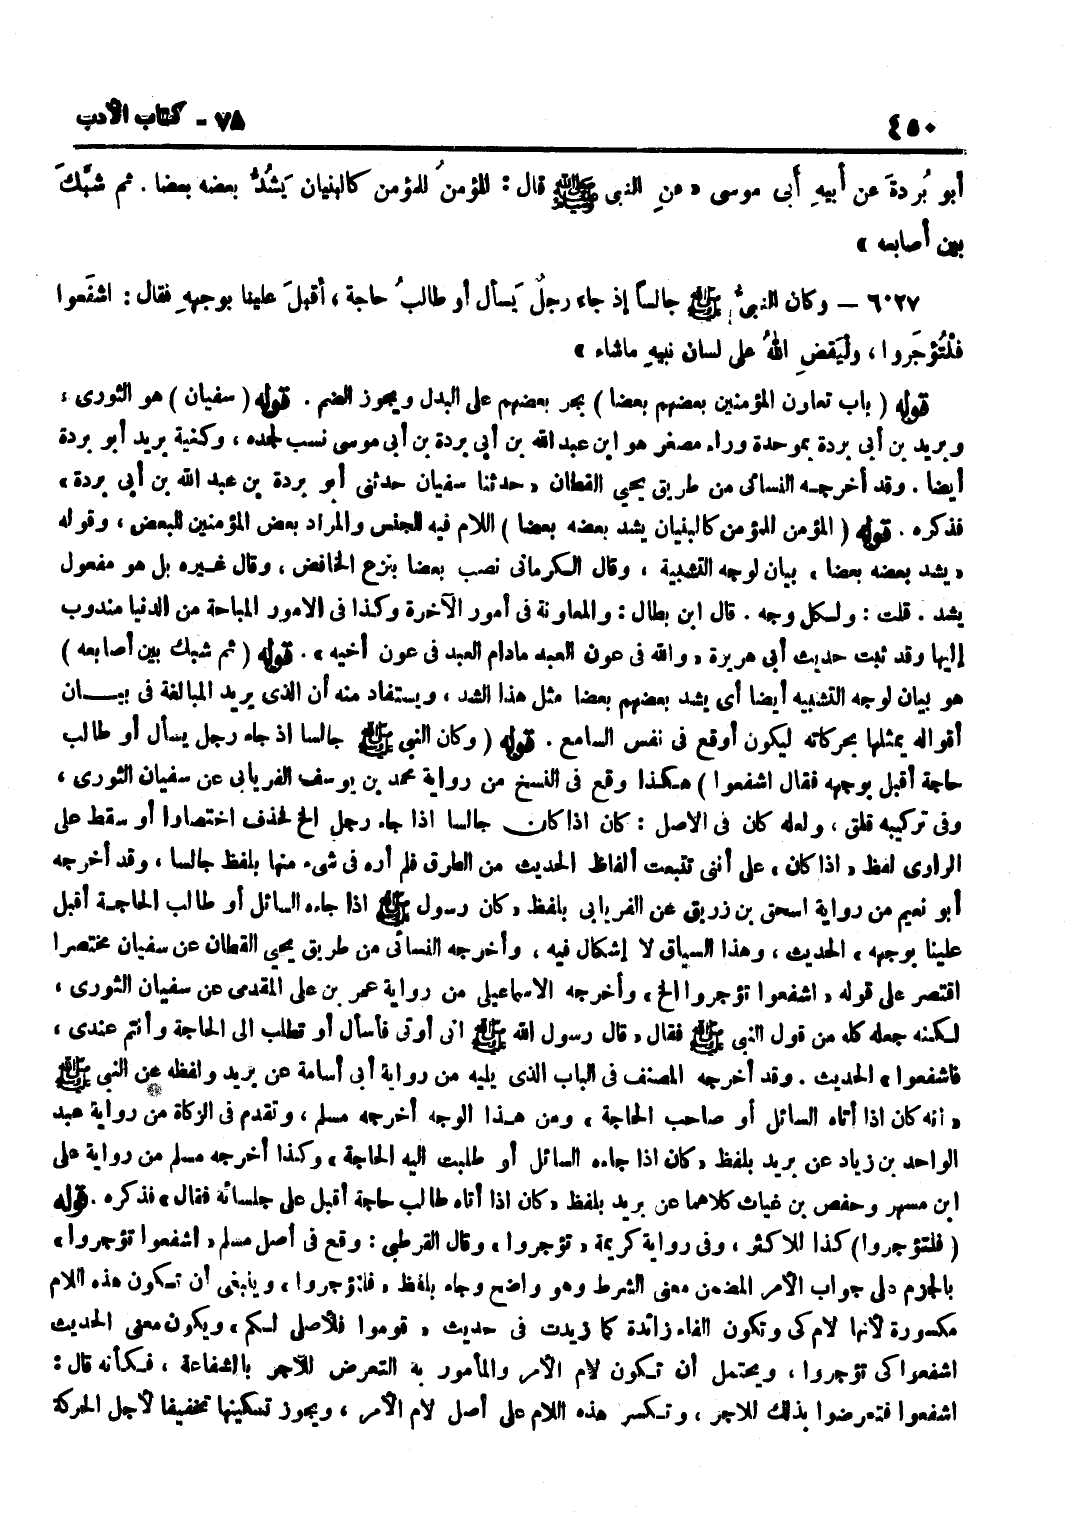 ٤٥٠
٧٨ - كتاب الأدب
أبو بُردةَ عن أبيهِ أبى موسى « عنِ النبى ﷺ قال : المؤمنُ للمؤمن كالبنيان يَشُدُّ بعضه بعضا . ثم شبَّكَ
بين أصابعه »
٦٠٢٧ – وكان النبىُّ ﷺ جالساً إذ جاء رجلٌ يَسأل أو طالبُ حاجة ، أقبلَ علينا بوجههِ فقال : اشفَعوا
فلْتُؤجَروا ، ولْيَقضِ اللهُ على لسان نبيهِ ماشاء »
قوله ( باب تعاون المؤمنين بعضهم بعضا ) بجر بعضهم على البدل ويجوز الضم . قوله ( سفيان ) هو الثورى ،
وبريد بن أبى بردة بموحدة وراء مصغر هو ابن عبد الله بن أبى بردة بن أبى موسى نسب لجده ، وكنية بريد أبو بردة
أيضا . وقد أخرجه النسائى من طريق يحيى القطان « حدثنا سفيان حدثنى أبو بردة بن عبد الله بن أبى بردة »
فذكره . قوله ( المؤمن للمؤمن كالبنيان يشد بعضه بعضا ) اللام فيه للجنس والمراد بعض المؤمنين للبعض ، وقوله
« يشد بعضه بعضا » بيان لوجه التشبيه ، وقال الكرمانى نصب بعضا بنزع الخافض ، وقال غيره بل هو مفعول
يشد . قلت : ولكل وجه . قال ابن بطال : والمعاونة فى أمور الآخرة وكذا فى الامور المباحة من الدنيا مندوب
إليها وقد ثبت حديث أبى هريرة « والله فى عون العبد مادام العبد فى عون أخيه » . قوله ( ثم شبك بين أصابعه )
هو بيان لوجه التشبيه أيضا أى يشد بعضهم بعضا مثل هذا الشد ، ويستفاد منه أن الذى يريد المبالغة فى بيـــان
أقواله يمثلها بحركاته ليكون أوقع فى نفس السامع . قوله ( وكان النبى ﷺ جالسا اذ جاء رجل يسأل أو طالب
حاجة أقبل بوجهه فقال اشفعوا ) هكذا وقع فى النسخ من رواية محمد بن يوسف الفريابى عن سفيان الثورى ،
وفى تركيبه قلق ، ولعله كان فى الاصل : كان اذا كان جالسا اذا جاء رجل الخ لحذف اختصارا أو سقط على
الراوى لفظ « اذا كان » على أننى تتبعت ألفاظ الحديث من الطرق فلم أره فى شىء منها بلفظ جالسا ، وقد أخرجه
أبو نعيم من رواية اسحق بن زريق عن الفريابى بلفظ « كان رسول ﷺ اذا جاءه السائل أو طالب الحاجة أقبل
علينا بوجهه » الحديث ، وهذا السياق لا إشكال فيه ، وأخرجه النسائى من طريق يحيى القطان عن سفيان مختصرا
اقتصر على قوله « اشفعوا تؤجروا الخ » وأخرجه الاسماعيلى من رواية عمر بن على المقدمى عن سفيان الثورى ،
لكنه جعله كله من قول النبى ﷺ فقال « قال رسول الله ﷺ انى أوتى فأسأل أو تطلب الى الحاجة وأنتم عندى ،
فاشفعوا » الحديث . وقد أخرجه المصنف فى الباب الذى يليه من رواية أبى أسامة عن بريد ولفظه عن النبى ﷺ
« انه كان اذا أتاه السائل أو صاحب الحاجة » ومن هذا الوجه أخرجه مسلم ، وتقدم فى الزكاة من رواية عبد
الواحد بن زياد عن بريد بلفظ « كان اذا جاءه السائل أو طلبت اليه الحاجة » وكذا أخرجه مسلم من رواية على
ابن مسهر وحفص بن غياث كلاهما عن بريد بلفظ « كان اذا أتاه طالب حاجة أقبل على جلسائه فقال » فذكره . قوله
( فلتؤجروا ) كذا للاكثر ، وفى رواية كريمة « تؤجروا » وقال القرطبى : وقع فى أصل مسلم « اشفعوا تؤجروا »
بالجزم على جواب الأمر المضمن معنى الشرط وهو واضح وجاء بلفظ « فلتؤجروا » وينبغى أن تكون هذه اللام
مكسورة لأنها لام كى وتكون الفاء زائدة كما زيدت فى حديث « قوموا فلأصلى لكم » ويكون معنى الحديث
اشفعوا كى تؤجروا ، ويحتمل أن تكون لام الأمر والمأمور به التعرض للأجر بالشفاعة ، فكأنه قال :
اشفعوا فتعرضوا بذلك للاجر ، وتكسر هذه اللام على أصل لام الأمر ، ويجوز تسكينها تخفيفا لأجل الحركة